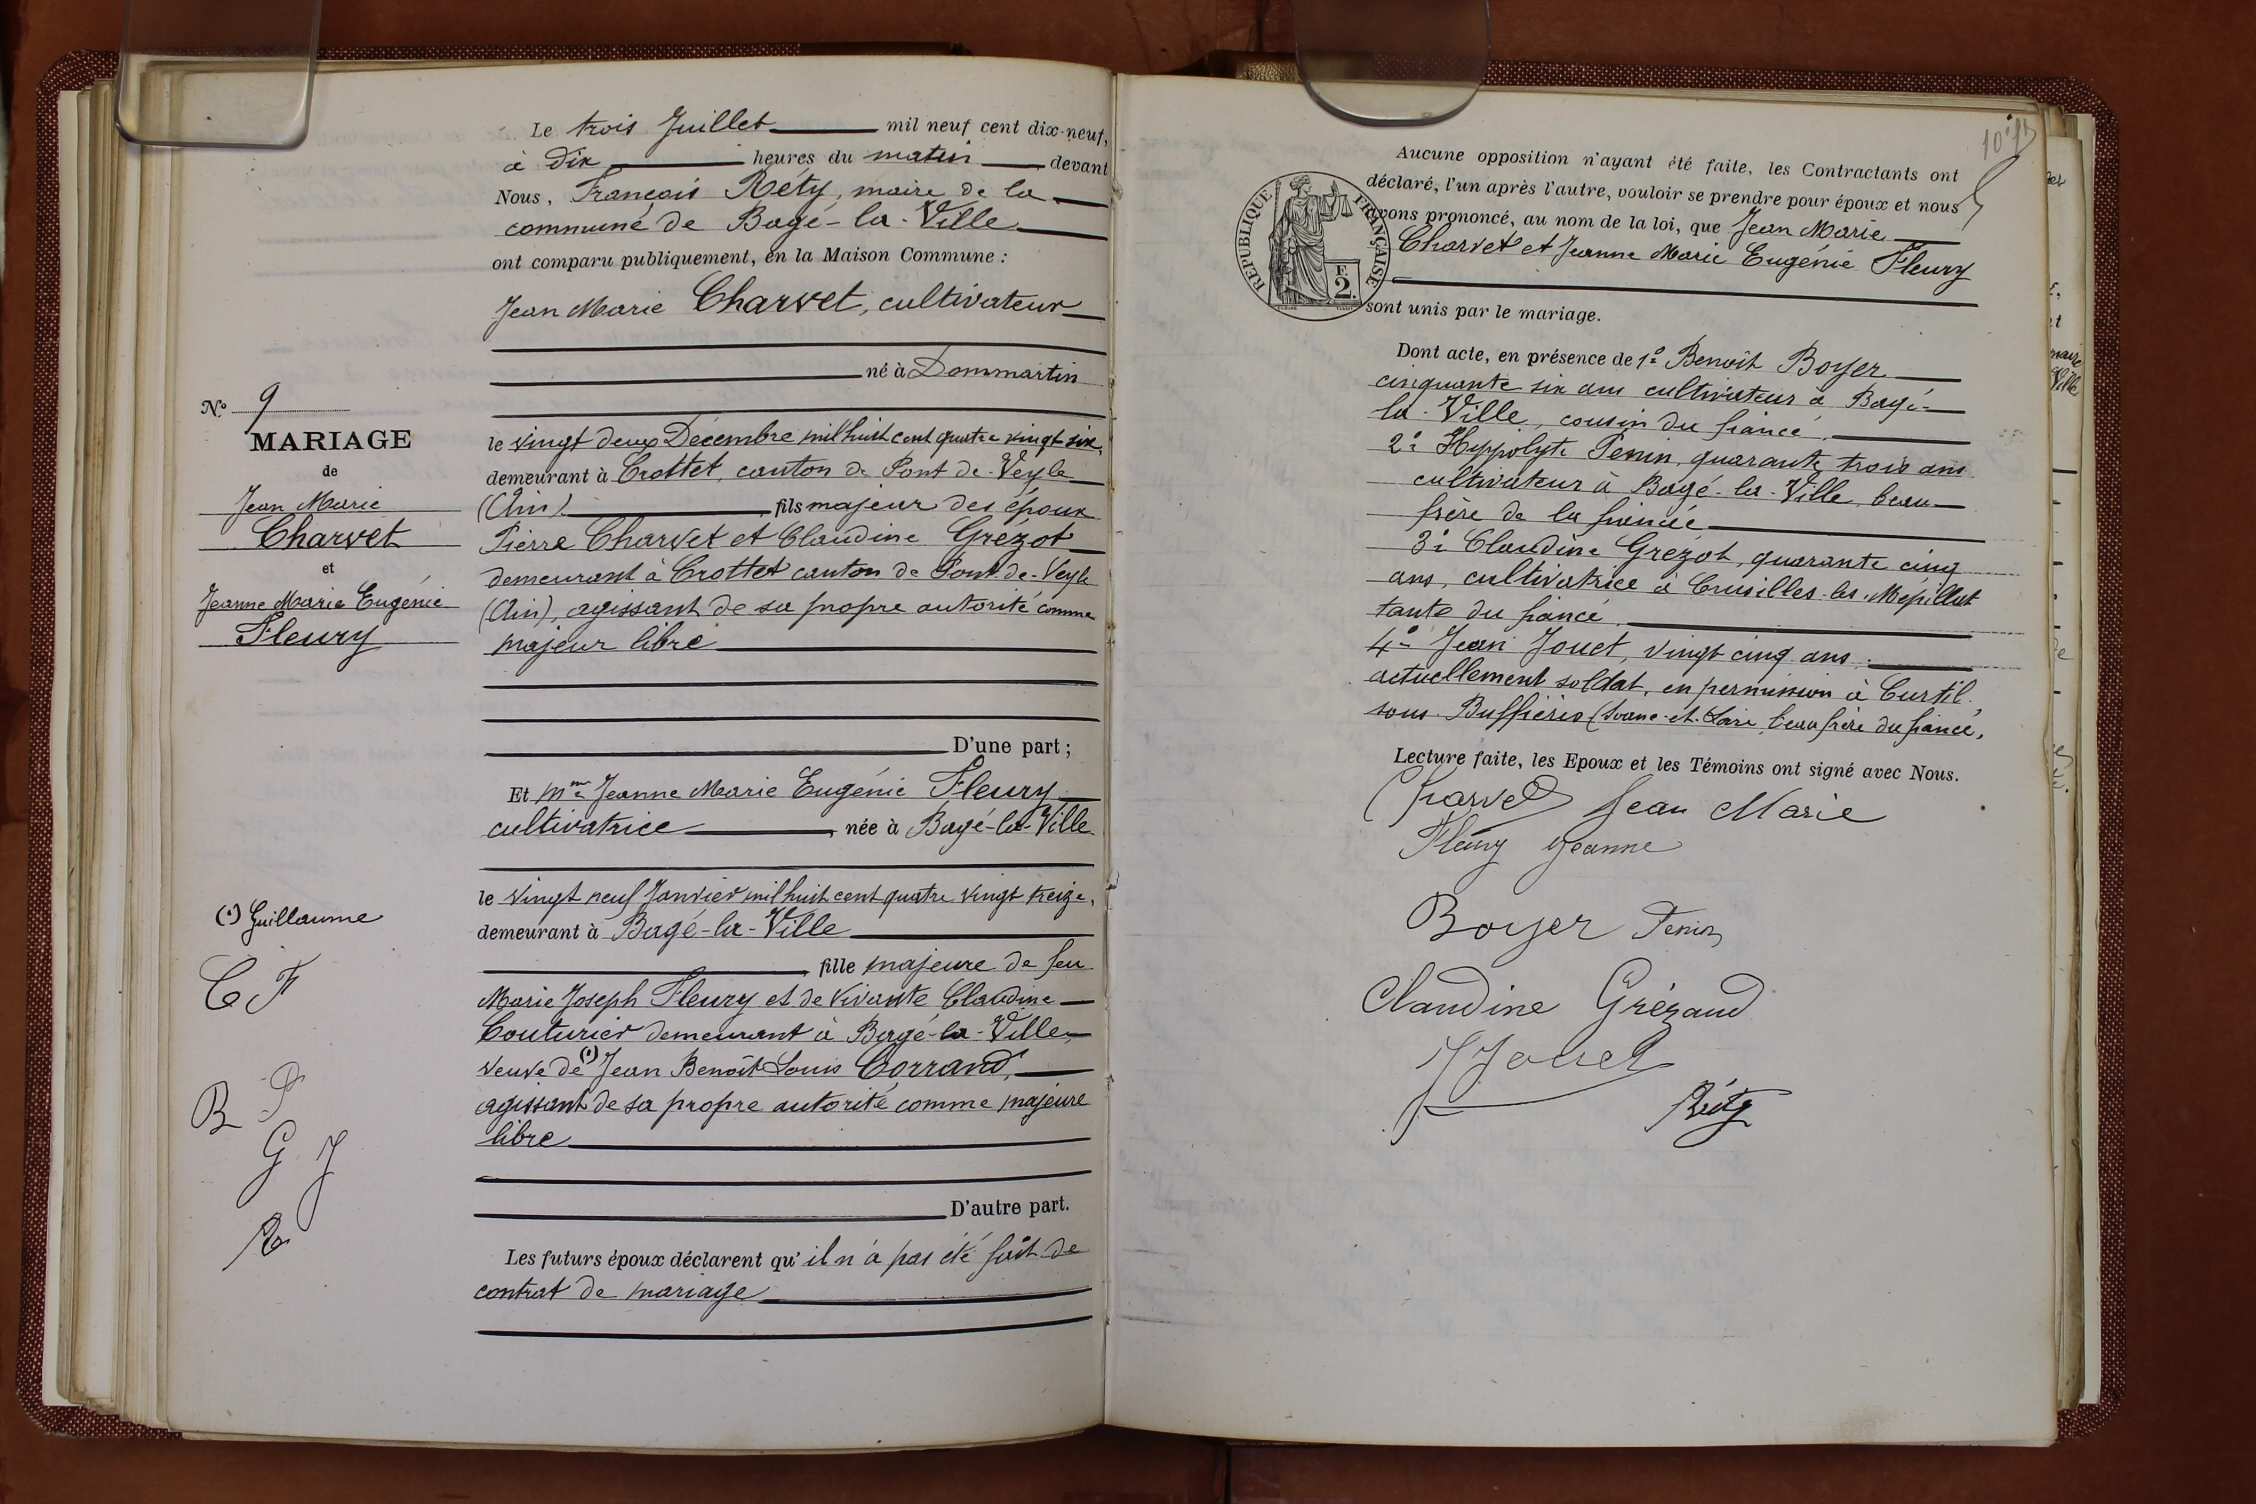 N° 9
MARIAGE
de
Jean Marie
Charvet
et
Jeanne Marie Eugénie
Fleury
(1) Guillaume
C F
B P
G J
R
Le trois Juillet mil neuf cent dix-neuf,
à dix heures du matin devant
Nous, François Réty, maire de la
commune de Bagé-la-Ville
ont comparu publiquement, en la Maison Commune :
Jean Marie Charvet, cultivateur
né à Dommartin
le vingt deux Décembre mil huit cent quatre vingt six,
demeurant à Crottet, canton de Pont-de-Veyle
(Ain) fils majeur des époux
Pierre Charvet et Claudine Grézot
demeurant à Crottet canton de Pont-de-Veyle
(Ain), agissant de sa propre autorité comme
majeur libre
D'une part ;
Et Mme Jeanne Marie Eugénie Fleury
cultivatrice, née à Bagé-la-Ville
le vingt neuf Janvier mil huit cent quatre vingt treize,
demeurant à Bagé-la-Ville
fille majeure de feu
Marie Joseph Fleury et de vivante Claudine
Couturier demeurant à Bagé-la-Ville,
veuve de (1) Jean Benoît Louis Corrand,
agissant de sa propre autorité comme majeure
libre
D'autre part.
Les futurs époux déclarent qu'il n'a pas été fait de
contrat de mariage
Aucune opposition n'ayant été faite, les Contractants ont
déclaré, l'un après l'autre, vouloir se prendre pour époux et nous
avons prononcé, au nom de la loi, que Jean Marie
Charvet et Jeanne Marie Eugénie Fleury
sont unis par le mariage.
RÉPUBLIQUE FRANÇAISE
F.
2.
Dont acte, en présence de 1° Benoît Boyer
cinquante six ans cultivateur à Bagé-
la-Ville, cousin du fiancé.
2° Hyppolyte Penin, quarante trois ans
cultivateur à Bagé-la-Ville, beau-
frère de la fiancée
3° Claudine Grézot, quarante cinq
ans, cultivatrice à Crusilles-les-Mépillat
tante du fiancé.
4° Jean Jouet, vingt cinq ans,
actuellement soldat, en permission à Curtil,
sous-Buffières (Soane-et-Loire, beau frère du fiancé,
Lecture faite, les Epoux et les Témoins ont signé avec Nous.
Charvet Jean Marie
Fleury Jeanne
Boyer Penin
Claudine Grézaud
J Jouet
Réty